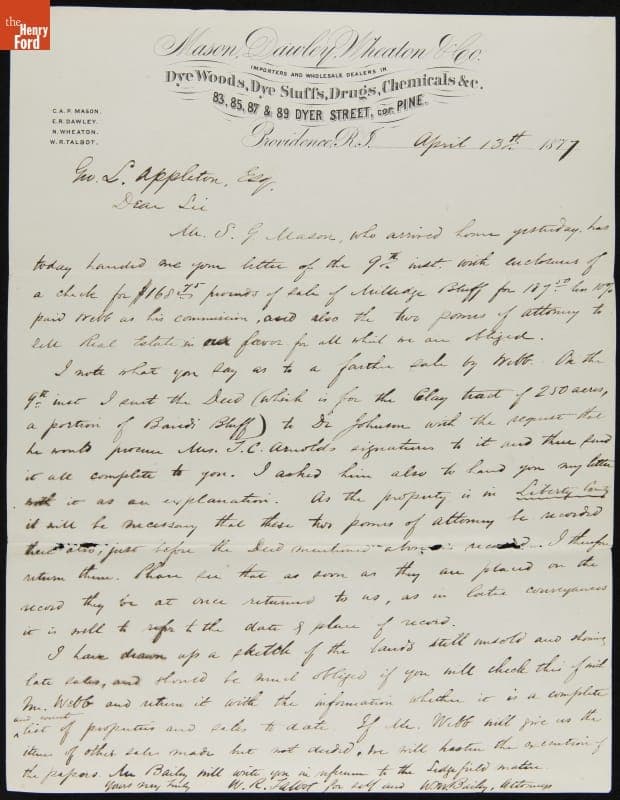 the
Henry
Ford
Mason, Dawley, Wheaton & Co.
IMPORTERS AND WHOLESALE DEALERS IN
Dye Woods, Dye Stuffs, Drugs, Chemicals &c.
83, 85, 87 & 89 DYER STREET, cor. PINE.
C.A.P. MASON.
E.R. DAWLEY.
N. WHEATON.
W.R. TALBOT.
Providence, R.I. April 13th 1877
Geo. L. Appleton, Esq.
Dear Sir
Mr. S. G. Mason, who arrived home yesterday, has
today handed me your letter of the 9th inst. with enclosures of
a check for $168 75 proceeds of sale of Milledge Bluff for 187 50 less 10%
paid Webb as his commission, and also the two powers of attorney to
sell Real Estate in our favor for all which we are obliged.
I note what you say as to a further sale by Webb. On the
9th inst I sent the Deed (which is for the Clay tract of 250 acres,
a portion of Bluff) to Dr Johnson with the request that
he would procure Mrs. Arnold's signatures to it and then send
it all complete to you. I asked him also to hand you my letter
with it as an explanation. As the property is in Liberty County
it will be necessary that these two powers of attorney be recorded
there also, just before the Deed mentioned above is recorded. I therefore
return them. Please see that as soon as they are placed on the
record they be at once returned to us, as in later conveyances
it is well to refer to the date & place of record.
I have drawn up a sketch of the lands still unsold and showing
late sales, and should be much obliged if you will check this f with
Mr. Webb and return it with the information whether it is a complete
and correct
list of properties and sales to date. If Mr. Webb will give us the
items of other sales made but not deeded, we will hasten the execution of
the papers. Mr Bailey will write you in reference to the Sedgefield matter.
Yours very truly W. R. Talbot for self and Wm Bailey, Attorneys